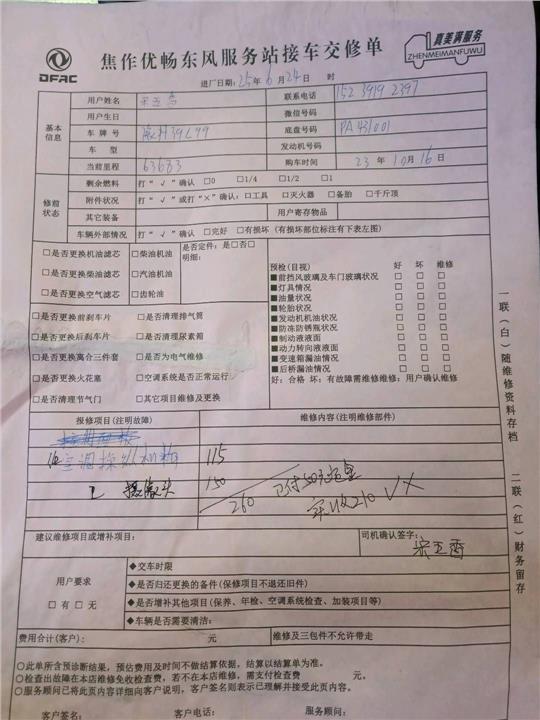 DFAC
焦作优畅东风服务站接车交修单
真美满服务
ZHENMEIMANFUWU
进厂日期：25年6月24日 时
基本信息
用户姓名 联系电话 152 3919 2397
用户生日 微信号码
车牌号 底盘号码 PA431001
车型 发动机号码
当前里程 63683 购车时间 23年10月16日
修前状态
剩余燃料 打“√”确认 □0 □1/4 □1/2 □1
附件状况 打“√”或打“×”确认：□工具 □灭火器 □备胎 □千斤顶
其它装备 用户寄存物品
车辆外部情况 打“√”确认 □完好 □有损坏（有损坏部位标注有下表左图）
□是否更换机油滤芯 □柴油机油
□是否更换柴油滤芯 □汽油机油
□是否更换空气滤芯 □齿轮油
是否定件：是□否□
明细：
□是否更换前刹车片 □是否清理排气筒
□是否更换后刹车片 □是否清理尿素箱
□是否更换离合三件套 □是否为电气维修
□是否更换火花塞 □空调系统是否正常运行
□是否清理节气门 □其它项目维修及更换
预检（目视） 好 坏 维修
■前挡风玻璃及车门玻璃状况 □ □ □
■灯具情况 □ □ □
■油量状况 □ □ □
■轮胎状况 □ □ □
■发动机机油状况 □ □ □
■防冻防锈瓶状况 □ □ □
■制动液液面 □ □ □
■动力转向液液面 □ □ □
■变速箱漏油情况 □ □ □
■后桥漏油情况 □ □ □
好：合格 坏：有故障需维修维修：用户确认维修
报修项目（注明故障） 维修内容（注明维修部件）
空调 115
摄像头 150
260 已付50元
实收210
建议维修项目或增补项目： 司机确认签字：
用户要求
□有□无
◆交车时限
◆是否归还更换的备件（保修项目不退还旧件）
◆是否增补其他项目（保养、年检、空调系统检查、加装项目等）
◆车辆是否需要清洁：
费用合计（客户）： 元 维修及三包件不允许带走
○此单所含预诊断结果，预估费用及时间不做结算依据，结算以结算单为准。
○检查出故障在本店维修免收检查费，若不在本店维修，需支付检查费 元。
○服务顾问已将此页内容详细向客户说明，客户签名则表示已理解并接受此页内容。
客户签名： 客户电话： 服务顾问签名：
一联（白）随维修资料存档
二联（红）财务留存